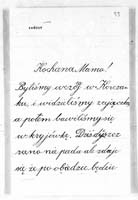 Kochana Mamo!
Byliśmy wczoj w Koncza-
ku i widzieliśmy zajączka
a potem bawiliśmy się
w kryjówkę. Dziś dyszcz
rano na pada ale zdaje
się że po obiedzie będzie